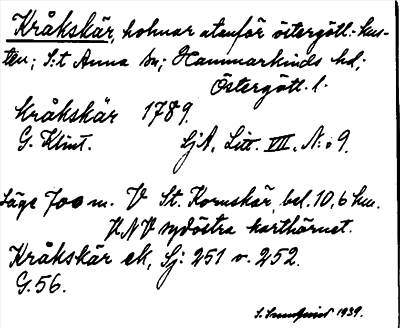 Kråkskär, holmar utanför östergötl. kus-
ten; S:t Anna sn; Hammarkinds hd;
Östergötl. l.
Kråkskär 1789.
G. Klint. SjA, Litt. VII, N:o 9.
Läge 700 m. V St. Kornskär, bel. 10,6 km.
VNV sydöstra karthörnet.
Kråkskär ek, Sj: 251 v. 252.
G. 56.
1939.